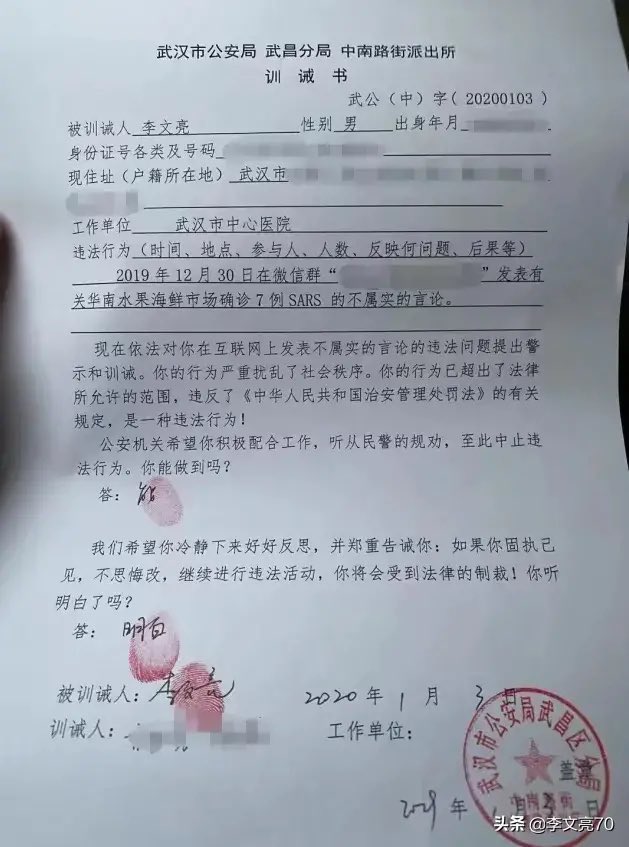 武汉市公安局 武昌分局 中南路街派出所
训诫书
武公（中）字（20200103）
被训诫人 李文亮 性别 男 出身年月
身份证号各类及号码
现住址（户籍所在地） 武汉市
工作单位 武汉市中心医院
违法行为（时间、地点、参与人、人数、反映何问题、后果等）
2019年12月30日在微信群“ ”发表有
关华南水果海鲜市场确诊7例SARS 的不属实的言论。
现在依法对你在互联网上发表不属实的言论的违法问题提出警
示和训诫。你的行为严重扰乱了社会秩序。你的行为已超出了法律
所允许的范围，违反了《中华人民共和国治安管理处罚法》的有关
规定，是一种违法行为！
公安机关希望你积极配合工作，听从民警的规劝，至此中止违
法行为。你能做到吗？
答：能
我们希望你冷静下来好好反思，并郑重告诫你：如果你固执己
见，不思悔改，继续进行违法活动，你将会受到法律的制裁！你听
明白了吗？
答：明白
被训诫人：李文亮 2020年1月3日
训诫人： 工作单位：
武汉市公安局武昌区分局
盖章
中南路街
年 月 日
头条 @李文亮70